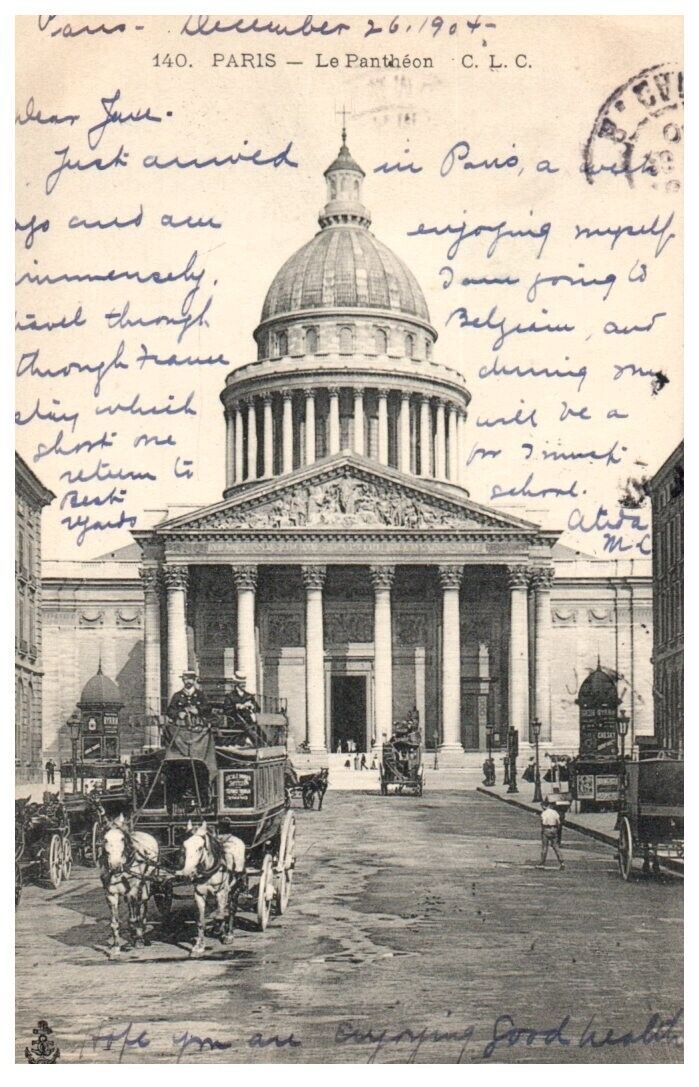 Paris - December 26, 1904 -
140. PARIS — Le Panthéon C. L. C.
Dear
Just arrived in Paris, a week
ago and am enjoying myself
immensely. I am going to
travel through Belgium, and
through France during my
stay which will be a
short one for I must
return to school.
Best
regards
M.C.
BYRRH
Hope you are enjoying good health